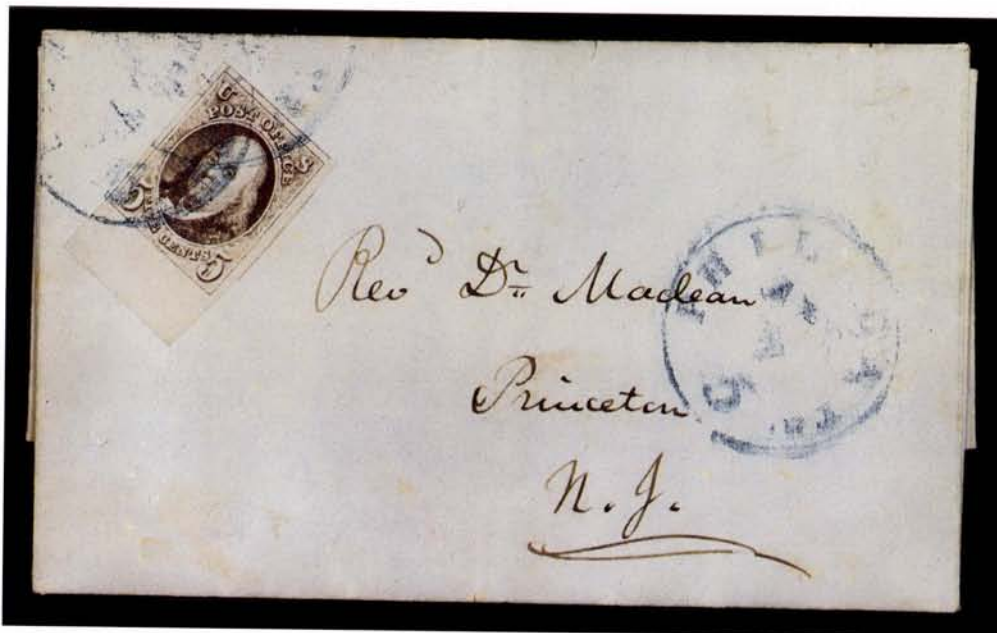 U S
POST OFFICE
FIVE CENTS
5 5
Revd Dr Maclean
Princeton
N. J.
PHIL
5 cts